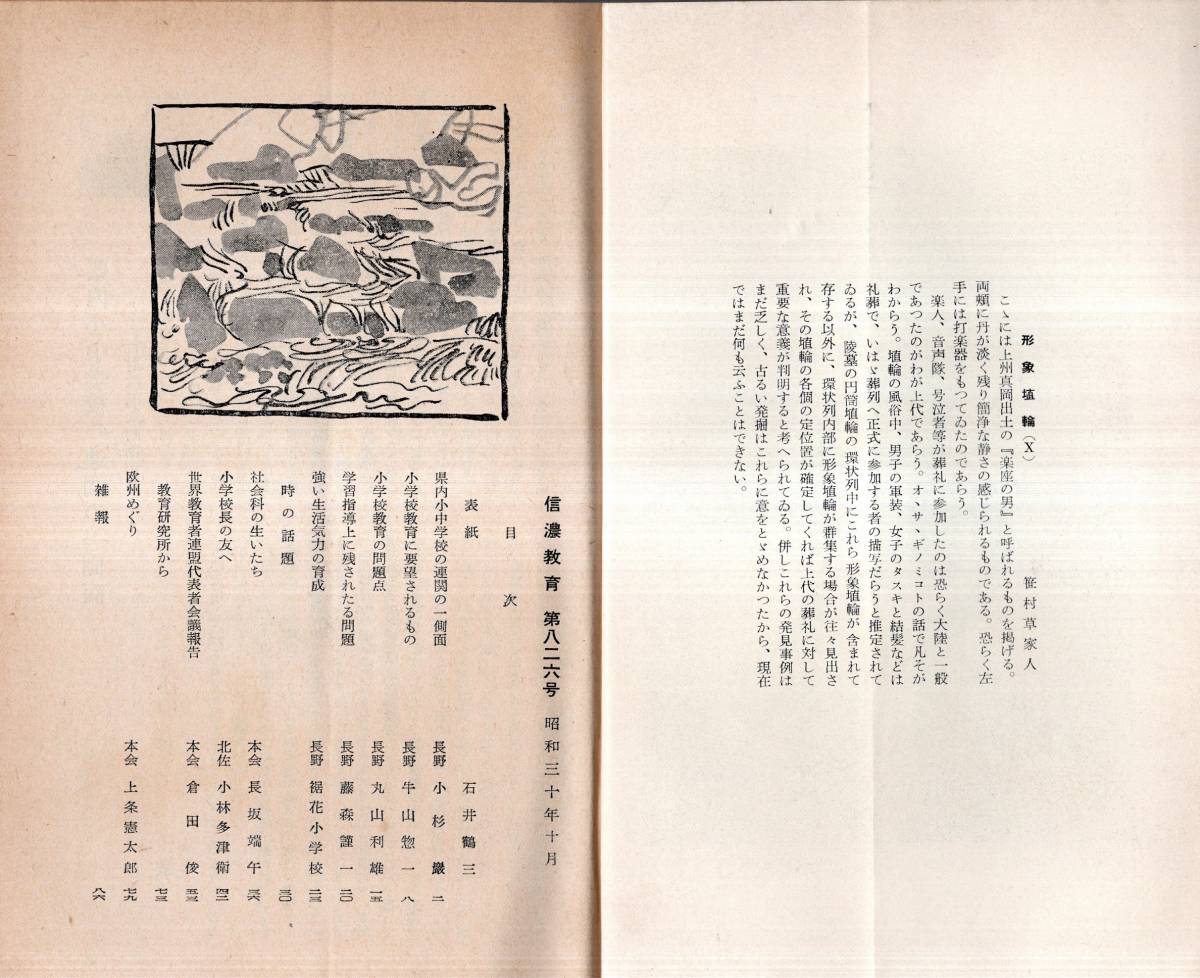 形象埴輪(X)
笹村草家人
こゝには上州真岡出土の『楽座の男』と呼ばれるものを掲げる。
両頰に丹が淡く残り簡浄な静さの感じられるものである。恐らく左
手には打楽器をもつてゐたのであらう。
楽人、音声隊、号泣者等が葬礼に参加したのは恐らく大陸と一般
であつたのがわが上代であらう。オヽサヽギノミコトの話で凡そが
わからう。埴輪の風俗中、男子の軍装、女子のタスキと結髪などは
礼葬で、いはゞ葬列へ正式に参加する者の描写だらうと推定されて
ゐるが、陵墓の円筒埴輪の環状列中にこれら形象埴輪が含まれて
存する以外に、環状列内部に形象埴輪が群集する場合が往々見出さ
れ、その埴輪の各個の定位置が確定してくれば上代の葬礼に対して
重要な意義が判明すると考へられてゐる。併しこれらの発見事例は
まだ乏しく、古るい発掘はこれらに意をとゞめなかつたから、現在
ではまだ何も云ふことはできない。
信濃教育 第八二六号 昭和三十年十月
目次
表紙 石井鶴三
県内小中学校の連関の一側面 長野 小杉巌 二
小学校教育に要望されるもの 長野 牛山惣一 八
小学校教育の問題点 長野 丸山利雄 一五
学習指導上に残されたる問題 長野 藤森謹一 二〇
強い生活気力の育成 長野 裾花小学校 二三
時の話題 三〇
社会科の生いたち 本会 長坂端午 三六
小学校長の友へ 北佐 小林多津衛 四二
世界教育者連盟代表者会議報告 本会 倉田俊 五三
教育研究所から 七三
欧州めぐり 本会 上条憲太郎 七九
雑報 八六